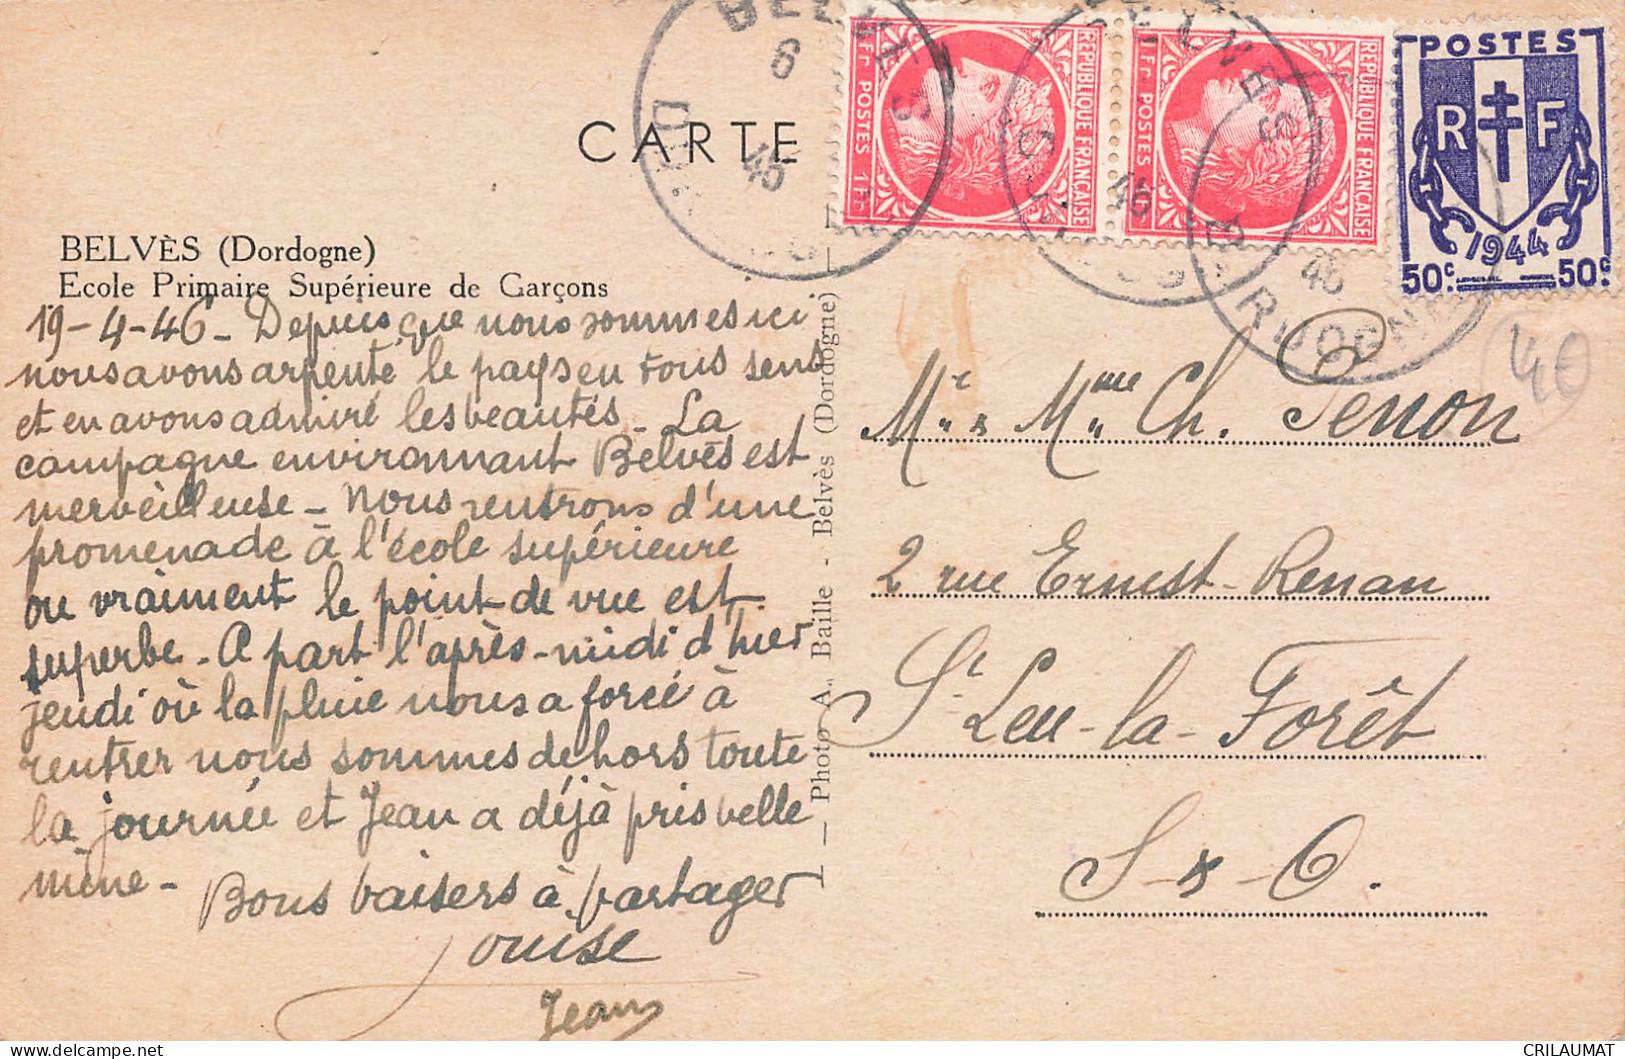 CARTE
BELVÈS (Dordogne)
Ecole Primaire Supérieure de Garçons
19-4-46- Depuis que nous sommes ici
nous avons arpenté le pays en tous sens
et en avons admiré les beautés. La
campagne environnant Belvès est
merveilleuse - Nous rentrons d'une
promenade à l'école supérieure
ou vraiment le point-de vue est
superbe - A part l'après-midi d'hier
jeudi où la pluie nous a forcé à
rentrer nous sommes dehors toute
la journée et Jean a déjà pris belle
mine - Bons baisers à partager
Louise
Jean
Photo A. Baille - Belvès (Dordogne)
BELVES
6
46
1Fr POSTES 1Fr
REPUBLIQUE FRANÇAISE
BELVES
46
1Fr POSTES 1Fr
REPUBLIQUE FRANÇAISE
46
POSTES
R F
1944
50c. 50c.
40
Mr & Mme Ch. Penon
2 rue Ernest-Renan
St Leu-la-Forêt
S-&-O.
CRILAUMAT